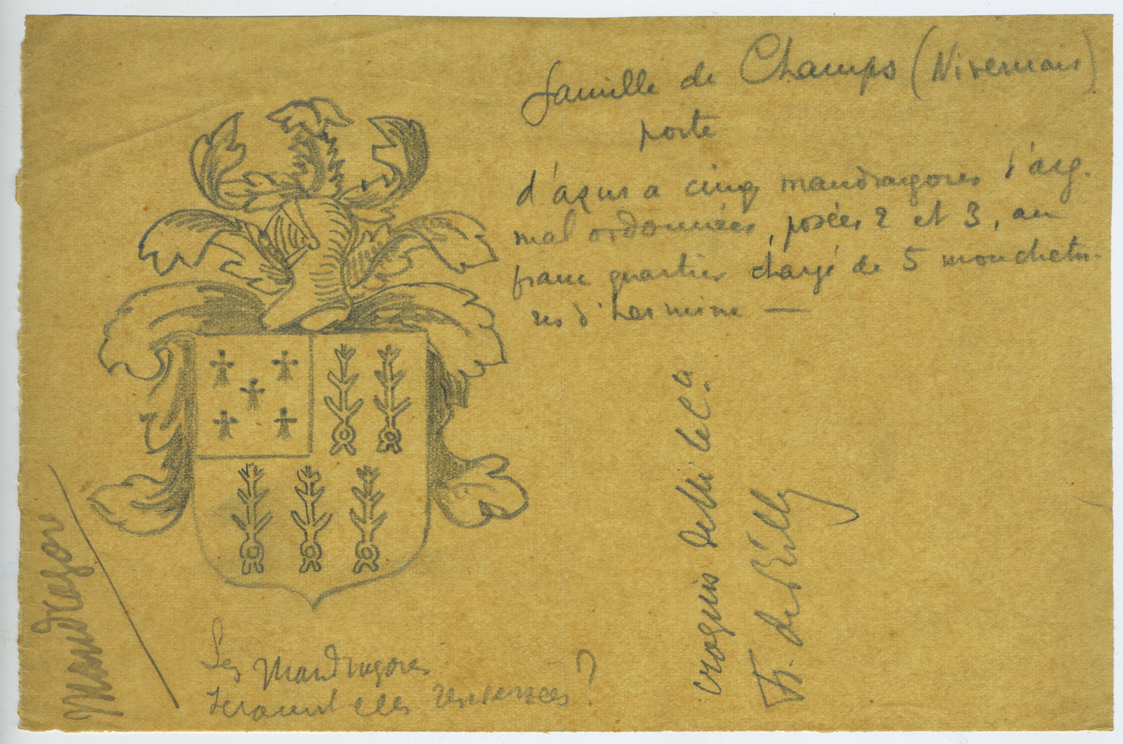 famille de Champs (Nivernais)
porte
d'azur a cinq mandragores d'arg.
mal ordonnées, posées 2 et 3, au
franc quartier chargé de 5 mouchetu-
res d'hermine —
croquis de
Fr. de Billy
Mandragore
Les Mandragores
seraient elles renversées ?